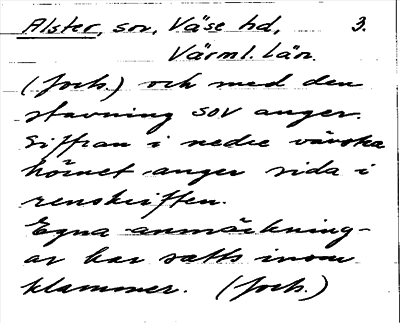 Alster, sov, Väse hd, 3.
Värml. län.
(forts.) och med den
stavning sov anger.
Siffran i nedre vänstra
hörnet anger sida i
renskriften.
Egna anmärkning-
ar har satts inom
klammer. (forts.)